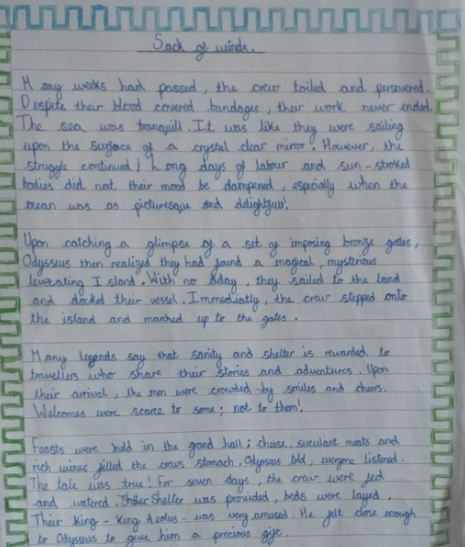 Sack of winds.
Many weeks had passed, the crew toiled and persevered.
Despite their blood covered bandages, their work never ended.
The sea was tranquill. It was like they were sailing
upon the surface of a crystal clear mirror. However, the
struggle continued! Long days of labour and sun-stroked
bodies did not their mood be dampened, especially when the
ocean was as picturesque and delightful!
Upon catching a glimpse of a set of imposing bronze gates,
Odysseus then realized they had found a magical, mysterious
leverating Island. With no delay, they sailed to the land
and docked their vessel. Immediatly, the crew stepped onto
the island and marched up to the gates.
Many legends say that sanity and shelter is rewarded to
travellers who share their stories and adventures. Upon
their arrival, the men were crowded by smiles and cheers.
Welcomes were scarce to some; not to them!
Feasts were held in the grand hall; cheese, succulant meats and
rich wines filled the crews stomach. Odysseus told, everyone listened.
The tale was true! For seven days, the crew were fed
and watered. Shelter was provided, beds were layed.
Their King - King Aeolus - was very amused. He felt close enough
to Odysseus to give him a precious gift.